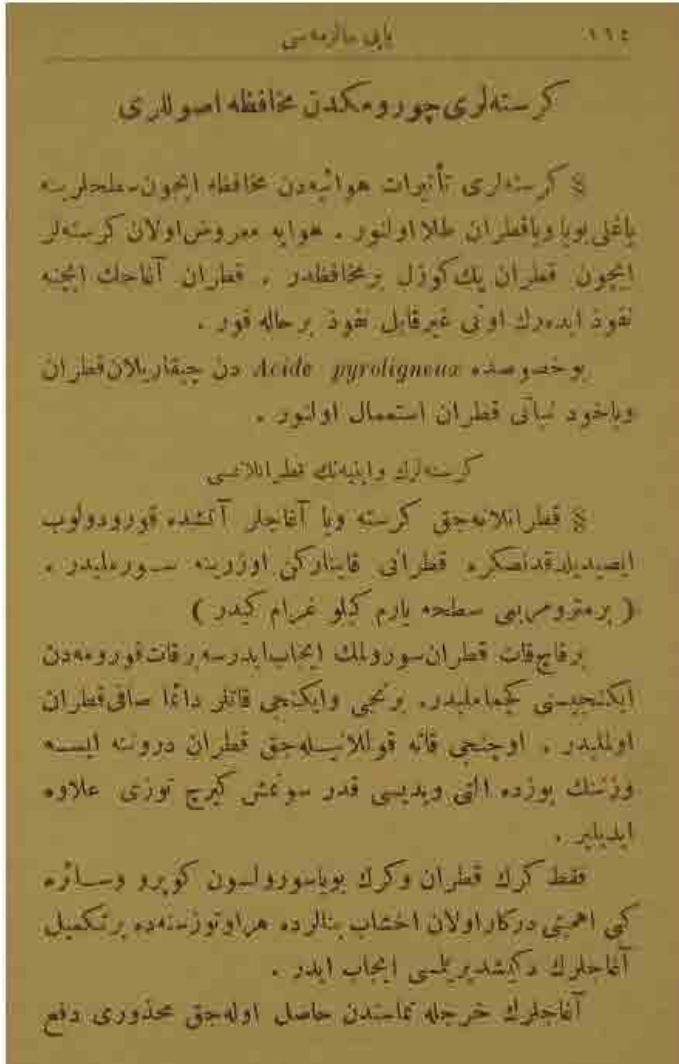 ١١٤ یاپی مالزمه‌سی
كرسته‌لری چورومكدن محافظه اصوللری
§ كرسته‌لری تأثیرات هوائیه‌دن محافظه ایچون سطحلرینه
یاغلی بویا ویا قطران طلا اولنور . هوایه معروض اولان كرسته‌لر
ایچون قطران پك كوزل برمحافظدر . قطران آغاجك ایچنه
نفوذ ایده‌رك اونی غیرقابل نفوذ برحاله قور .
بوخصوصده Acide pyroligneux دن چیقاریلان قطران
ویاخود نباتی قطران استعمال اولنور .
كرسته‌لرك وابنیه‌نك قطرانلانمسی
§ قطرانلانه‌جق كرسته ویا آغاجلر آتشده قورودولوب
ایصیدیلدقدنصكره قطرانی قاینارکن اوزرینه سورملیدر .
( برمترومربعی سطحه یارم كیلو غرام كیدر )
برقاچ قات قطران سورولمك ایجاب ایدرسه برقات قورومه‌دن
ایكنجیسنی كچمامليدر. برنجی وایكنجی قاتلر دائما صافی قطران
اولملیدر . اوچنجی قاته قوللانیله‌جق قطران دروننه ایسه
وزننك یوزده التی ویدیسی قدر سونمش كیرچ توزی علاوه
ایدیلیر .
فقط كرك قطران وكرك بویاسورولسون كوپرو وسائره
كبی اهمیتی دركار اولان اخشاب بنالرده هراوتوزسنه‌ده برتكمیل
آغاجلرك دكیشدیریلمسی ایجاب ایدر .
آغاجلرك خرجله تماسندن حاصل اوله‌جق محذوری دفع